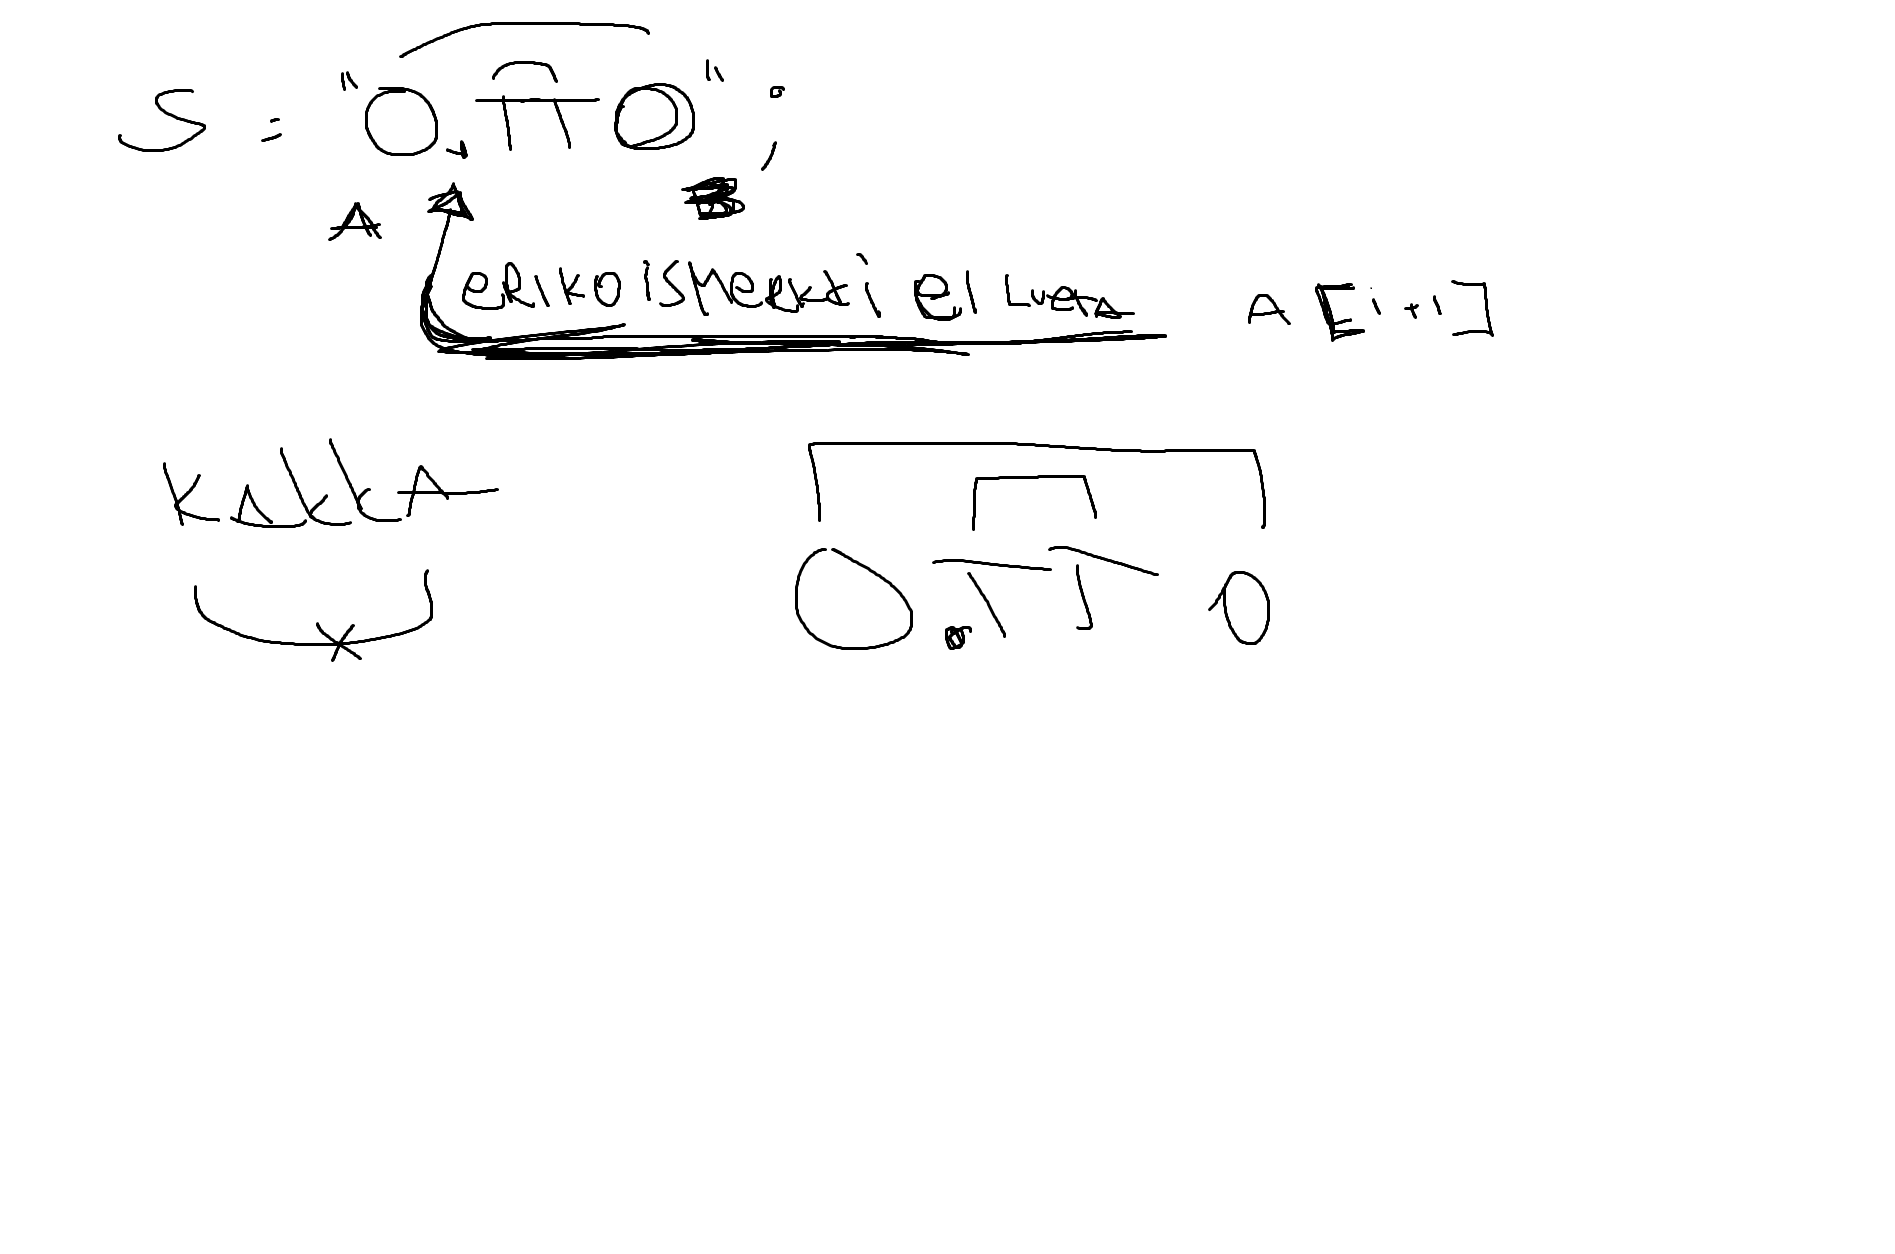 S = "O.TTO";
A B
ERIKOISMERKKI EI LUETA A[i+1]
KAKKA
O.TTO